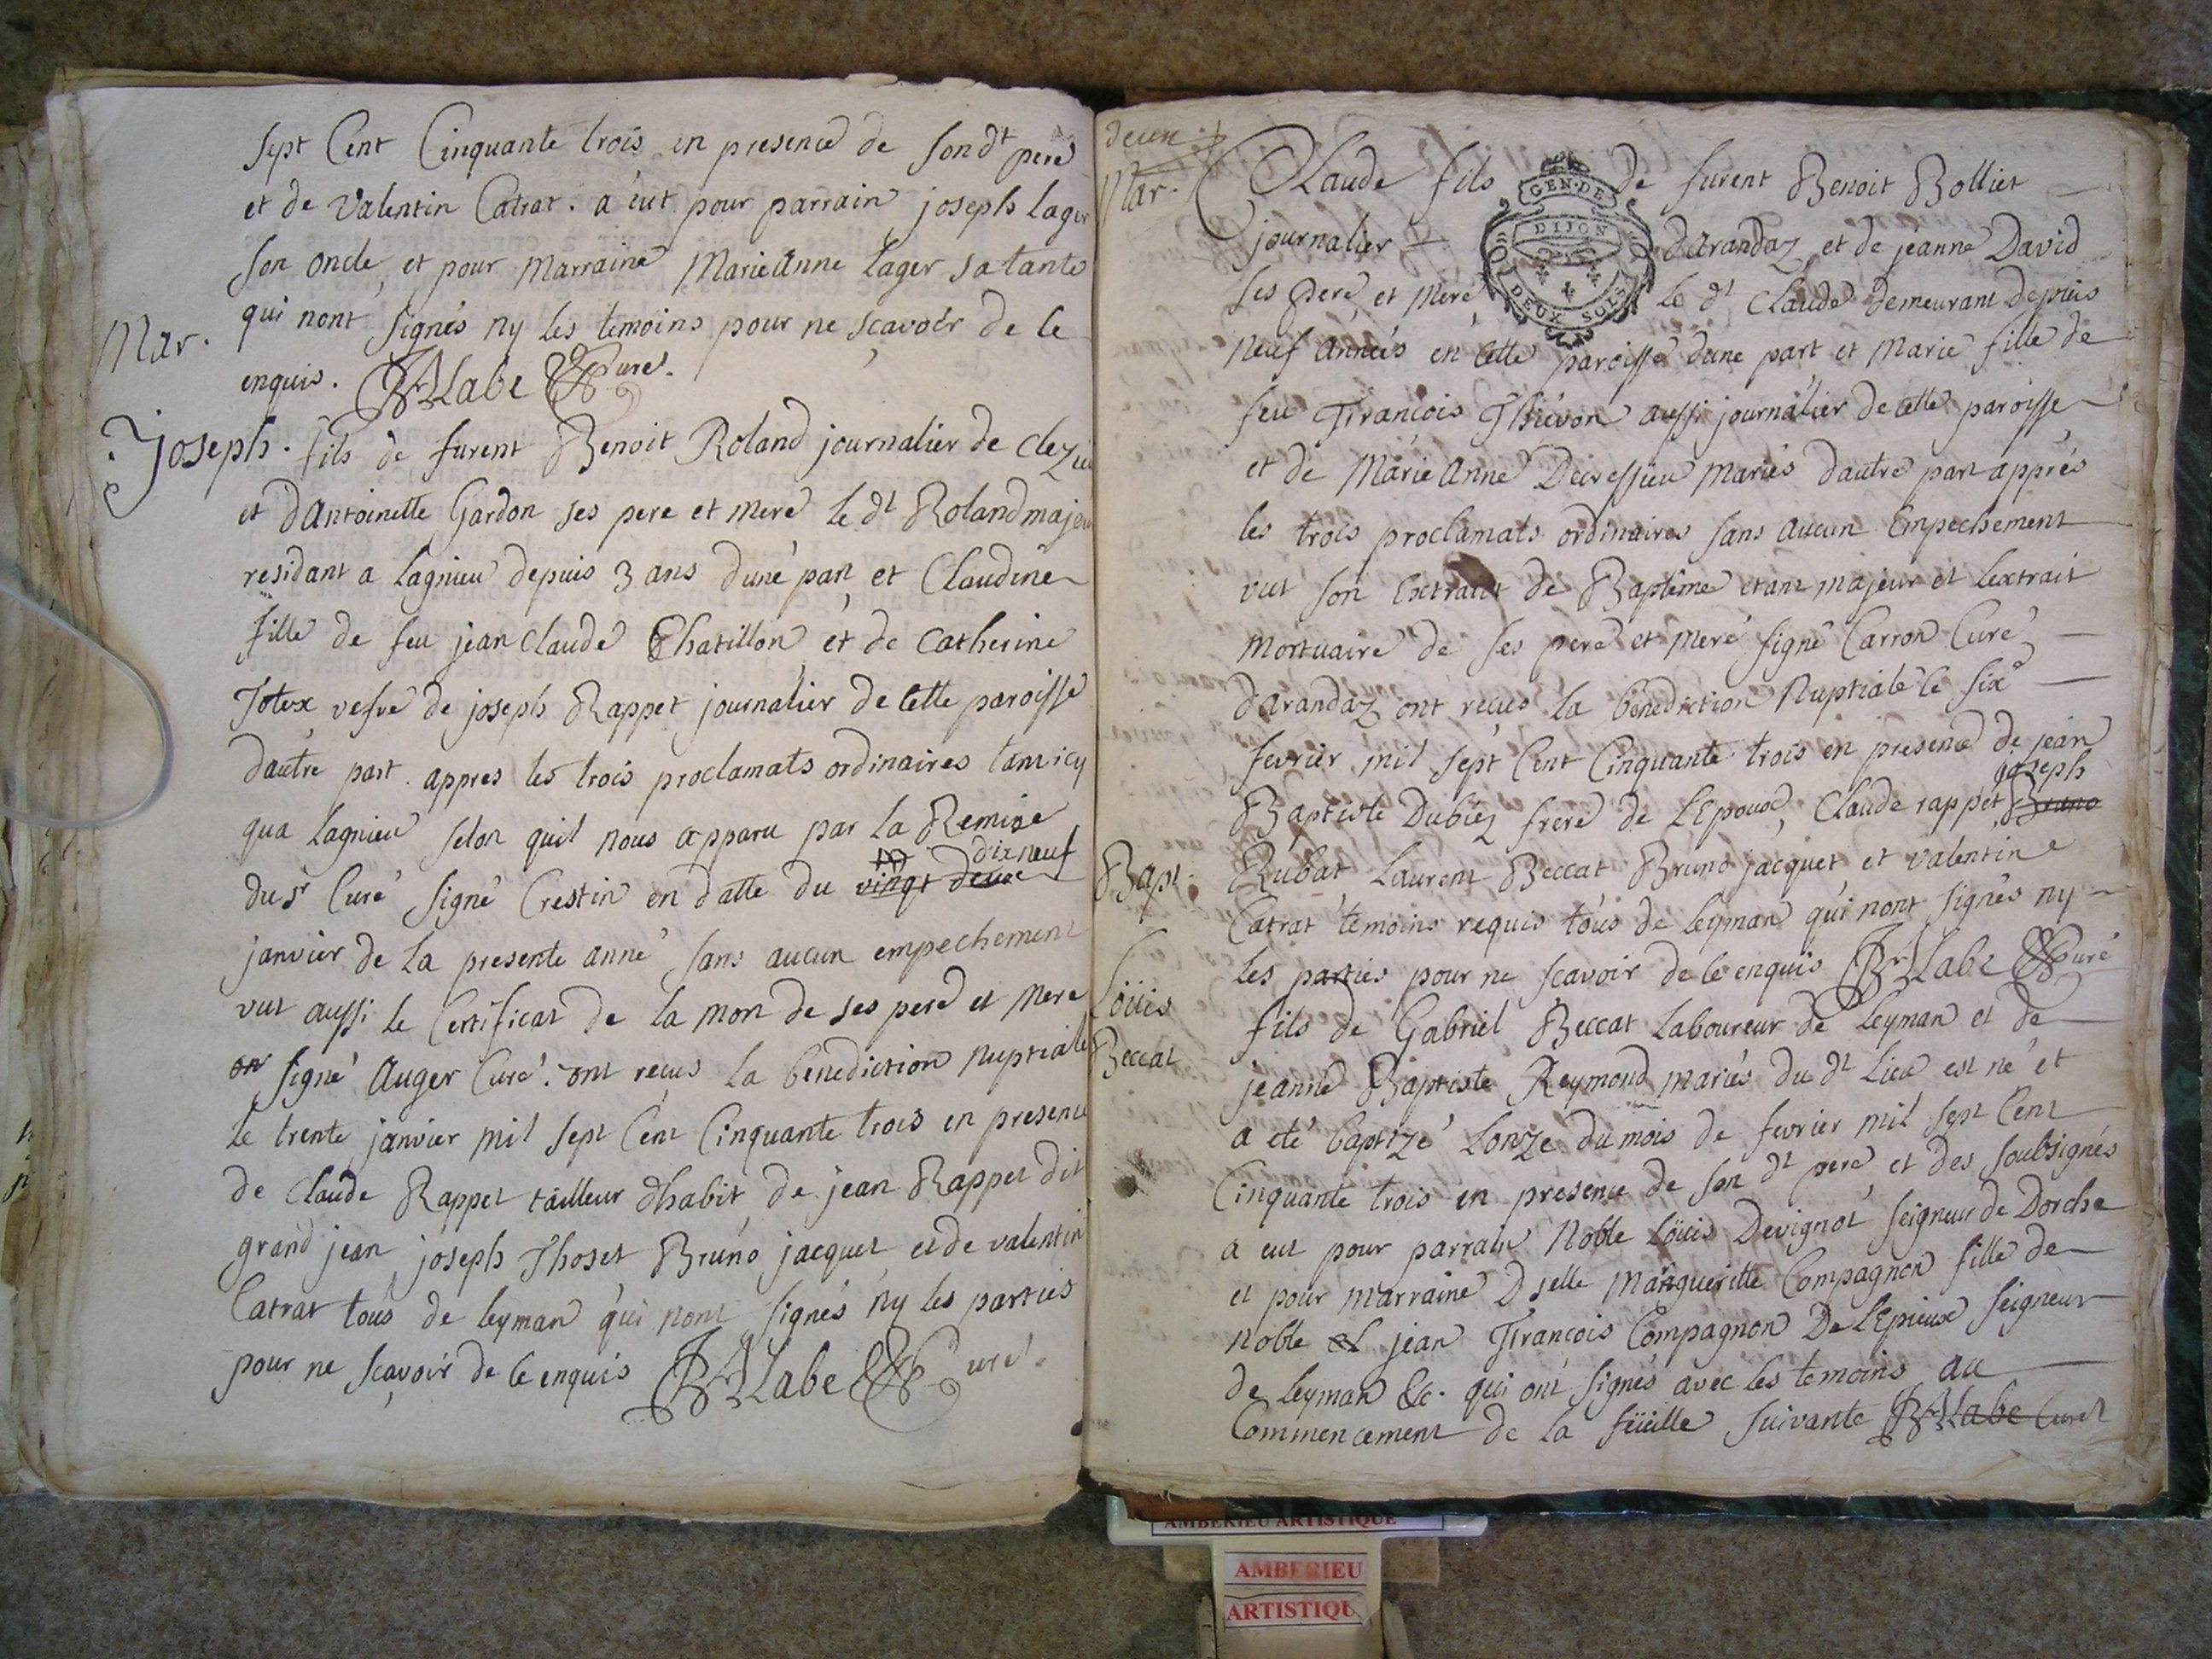 sept Cent Cinquante trois en presence de son dt pere
et de Valentin Catrat. a eut pour parrain joseph lager
son oncle et pour Marraine Marie Anne lager sa tante
qui nont signés ny les temoins pour ne scavoir de ce
Mar.
enquis. Labe Curé.
Joseph. fils de furent Benoit Roland journalier de Clezieu
et dAntoinette Gardon ses pere et mere le dt Roland majeur
residant a lagnieu depuis 3 ans dune part et Claudine
fille de feu jean Claude Chatillon et de Catherine
vefve de joseph Rappet journalier de cette paroisse
dautre part. appres les trois proclamats ordinaires tant icy
qua lagnieu selon quil nous apparu par la Remise
dixneuf
du sr Curé signé Crestin en datte du vingt deux
janvier de la presente anné sans aucun empechement
vut aussi le Certificat de la mort de ses pere et mere
signé Auger Curé. ont reçus la benediction nuptiale
le trente janvier mil sept Cent Cinquante trois en presence
de Claude Rappet tailleur dhabit de jean Rappet dit
grand jean joseph Thoset Bruno jacquet et de valentin
Catrat tous de leyman qui nont signés ny les parties
pour ne sçavoir de ce enquis Labe Curé.
Mar.
Claude fils de furent Benoit Bolliet
GEN. DE
DIJON
DEUX SOLS
journalier dArandaz et de jeanne David
ses Pere et Mere le dt Claude demeurant depuis
neuf années en cette paroisse dune part et Marie fille de
feu François Thievon aussi journalier de cette paroisse
et de Marie Anne mariés dautre part apprés
les trois proclamats ordinaires sans aucun Empechement
vut son Extrait de Baptême etant majeur et lextrait
Mortuaire de ses pere et mere signé Carron Curé
dArandaz ont reçus la benediction Nuptiale le six
fevrier mil sept Cent Cinquante trois en presence de jean
joseph
Baptiste Dubiez frere de LEpoux, Claude rappet Bruno
Bapt.
Rubat Laurent Beccat Bruno jacquet et valentin
Catrat temoins requis tous de leyman qui nont signés ny
les parties pour ne scavoir de ce enquis Labe Curé
Löüis
Beccat
fils de Gabriel Beccat Laboureur de Leyman et de
jeanne Baptiste Reymond mariés du dt Lieu est né et
a eté baptizé Lonze du mois de fevrier mil sept Cent
Cinquante trois en presence de son dt pere et des soubsignés
a eut pour parrain Noble Löüis Devignot seigneur de Dorche
et pour marraine Dselle Marguerite Compagnon fille de
Noble jean François Compagnon De LEpieux seigneur
de Leyman &c. qui ont signés avec les temoins au
Commencement de la füeille suivante Labe Curé
AMBERIEU ARTISTIQUE
AMBERIEU
ARTISTIQU